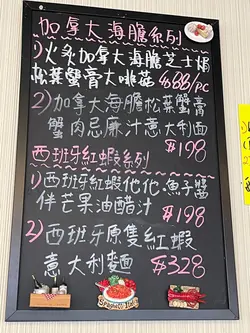 加拿大海膽系列
1)火炙加拿大海膽芝士焗
松葉蟹膏大啡菇 $688/pc
2)加拿大海膽松葉蟹膏
蟹肉忌廉汁薏大利面
$198
西班牙紅蝦系列
1)西班牙紅蝦他他.魚子醬
伴芒果油醋汁 $198
2)西班牙原隻紅蝦
意大利麵 $328